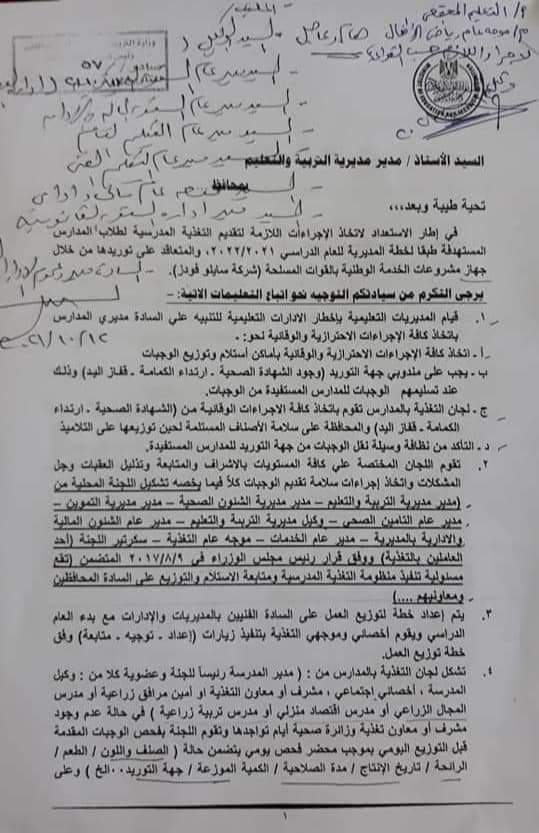 السيد الأستاذ / مدير مديرية التربية والتعليم
بمحافظ
تحية طيبة وبعد،،،
في إطار الاستعداد لاتخاذ الإجراءات اللازمة لتقديم التغذية المدرسية لطلاب المدارس
المستهدفة طبقا لخطة المديرية للعام الدراسي ٢٠٢٢/٢٠٢١، والمتعاقد على توريدها من خلال
جهاز مشروعات الخدمة الوطنية بالقوات المسلحة (شركة سايلو فودز).
يرجى التكرم من سيادتكم التوجيه نحو اتباع التعليمات الاتية:-
١. قيام المديريات التعليمية بإخطار الادارات التعليمية للتنبيه علي السادة مديري المدارس
باتخاذ كافة الإجراءات الاحترازية والوقائية نحو: -
أ- اتخاذ كافة الإجراءات الاحترازية والوقائية بأماكن أستلام وتوزيع الوجبات
ب- يجب على مندوبي جهة التوريد (وجود الشهادة الصحية - ارتداء الكمامة - قفاز اليد) وذلك
عند تسليمهم الوجبات للمدارس المستفيدة من الوجبات.
ج- لجان التغذية بالمدارس تقوم باتخاذ كافة الاجراءات الوقائية من (الشهادة الصحية - ارتداء
الكمامة - قفاز اليد) والمحافظة على سلامة الأصناف المستلمة لحين توزيعها على التلاميذ
د- التأكد من نظافة وسيلة نقل الوجبات من جهة التوريد للمدارس المستفيدة.
٢. تقوم اللجان المختصة علي كافة المستويات بالاشراف والمتابعة وتذليل العقبات وحل
المشكلات واتخاذ إجراءات سلامة تقديم الوجبات كلاً فيما يخصه تشكيل اللجنة المحلية من
(مدير مديرية التربية والتعليم – مدير مديرية الشئون الصحية – مدير مديرية التموين –
مدير عام التامين الصحي – وكيل مديرية التربية والتعليم – مدير عام الشئون المالية
والادارية بالمديرية – مدير عام الخدمات – موجه عام التغذية – سكرتير اللجنة (أحد
العاملين بالتغذية) ووفق قرار رئيس مجلس الوزراء في ٢٠١٧/٨/٩ المتضمن (تقع
مسئولية تنفيذ منظومة التغذية المدرسية ومتابعة الاستلام والتوزيع على السادة المحافظين
ومعاونيهم ....)
٣. يتم إعداد خطة لتوزيع العمل على السادة الفنيين بالمديريات والإدارات مع بدء العام
الدراسي ويقوم أخصائي وموجهي التغذية بتنفيذ زيارات (إعداد - توجيه - متابعة) وفق
خطة توزيع العمل.
٤. تشكل لجان التغذية بالمدارس من : ( مدير المدرسة رئيساً للجنة وعضوية كلا من : وكيل
المدرسة ، أخصائي إجتماعي ، مشرف أو معاون التغذية او امين مرافق زراعية أو مدرس
المجال الزراعي أو مدرس اقتصاد منزلي أو مدرس تربية زراعية ) في حالة عدم وجود
مشرف أو معاون تغذية وزائرة صحية أيام تواجدها وتقوم اللجنة بفحص الوجبات المقدمة
قبل التوزيع اليومي بموجب محضر فحص يومي يتضمن حالة ( الصنف واللون / الطعم /
الرائحة / تاريخ الإنتاج / مدة الصلاحية / الكمية الموزعة / جهة التوريد٠٠٠الخ ) وعلى
١